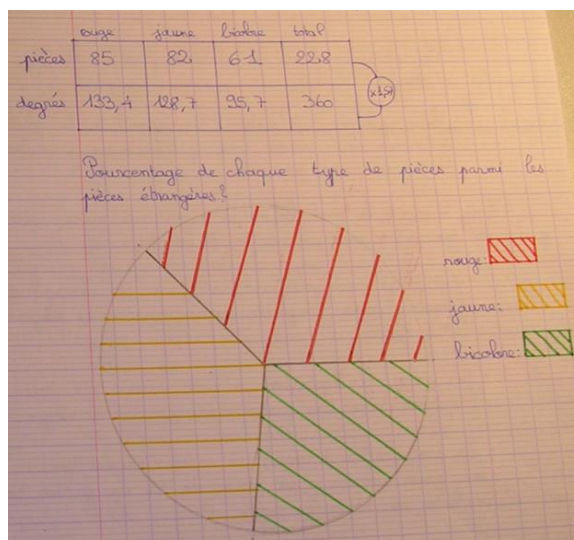 rouge jaune bicolore total
pièces 85 82 61 228
degrés 133,4 128,7 95,7 360
Pourcentage de chaque type de pièces parmi les
pièces étrangères?
rouge:
jaune:
bicolore: